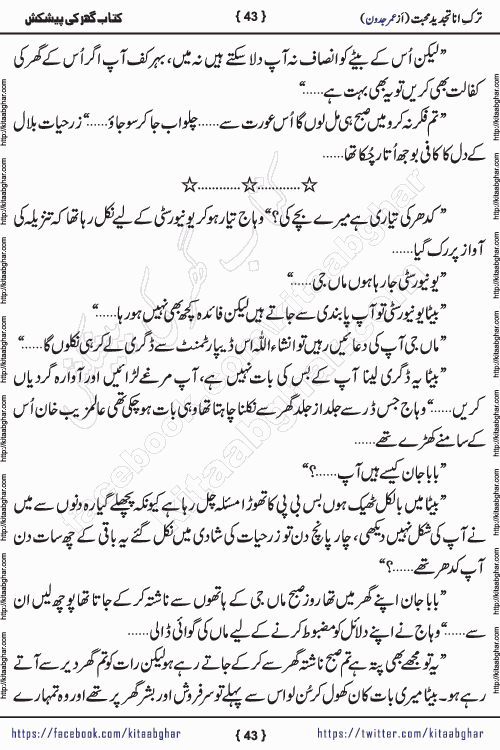 ترکِ انا تجدیدِ محبت (از عمر جدون)
{ 43 }
کتاب گھر کی پیشکش
”لیکن اُس کے بیٹے کو انصاف نہ آپ دلا سکتے ہیں نہ میں، بہر کف آپ اگر اُس کے گھر کی
کفالت بھی کریں تو یہ بھی بہت ہے......“
”تم فکر نہ کرو میں صبح ہی مل لوں گا اُس عورت سے...... چلو اب جا کر سو جاؤ......“ زرحیات بلال
کے دل کا کافی بوجھ اُتار چُکا تھا......
☆............☆............☆
”کدھر کی تیاری ہے میرے بچے کی؟“ وہاج تیار ہو کر یونیورسٹی کے لیے نکل رہا تھا کہ تنزیلہ کی
آواز پر رک گیا......
”یونیورسٹی جا رہا ہوں ماں جی......“
”بیٹا یونیورسٹی تو آپ پابندی سے جاتے ہیں لیکن فائدہ کچھ بھی نہیں ہو رہا......“
”ماں جی آپ کی دعائیں رہیں تو انشاءاللہ اس ڈیپارٹمنٹ سے ڈگری لے کر ہی نکلوں گا......“
”بیٹا یہ ڈگری لینا آپ کے بس کی بات نہیں ہے، آپ مرغے لڑائیں اور آوارہ گردیاں
کریں......“ وہاج جس ڈر سے جلد از جلد گھر سے نکلنا چاہتا تھا وہی بات ہو چکی تھی عالمزیب خان اُس
کے سامنے کھڑے تھے......
”بابا جان کیسے ہیں آپ......؟“
”بیٹا میں بالکل ٹھیک ہوں بس بی پی کا تھوڑا مسئلہ چل رہا ہے کیونکہ پچھلے گیارہ دنوں سے میں
نے آپ کی شکل نہیں دیکھی، چار پانچ دن تو زرحیات کی شادی میں نکل گئے یہ باقی کے چھ سات دن
آپ کدھر تھے......؟“
”بابا جان اپنے گھر میں تھا روز صبح ماں جی کے ہاتھوں سے ناشتہ کر کے جاتا تھا پوچھ لیں ان
سے......“ وہاج نے اپنے دلائل کو مضبوط کرنے کے لیے ماں کی گواہی ڈالی......
”یہ تو مجھے بھی پتہ ہے تم صبح ناشتہ گھر سے کر کے جاتے رہے ہو لیکن رات کو تم گھر دیر سے آتے
رہے ہو۔ بیٹا میری بات کان کھول کر سُن لو اس سے پہلے تو سرفروش اور بشر گھر پر تھے اور وہ تمہارے
https://facebook.com/kitaabghar
{ 43 }
https://twitter.com/kitaabghar
http://kitaabghar.com